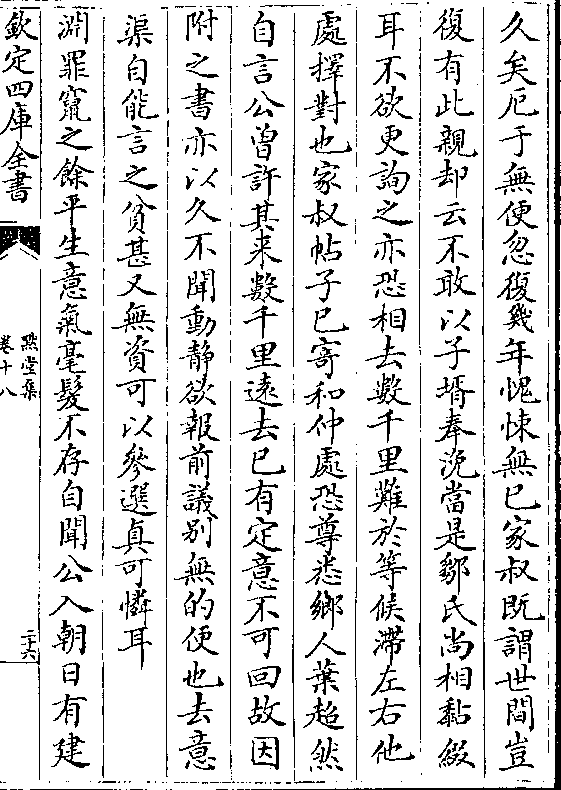 久矣厄于無便忽復幾年愧悚無已家叔既謂世間豈
復有此親却云不敢以子壻奉浼當是鄒氏尚相黏綴
耳不欲更詢之亦恐相去數千里難於等候滯左右他
處擇對也家叔帖子已寄和仲處恐尊悉鄉人葉超然
自言公曾許其来數千里遠去已有定意不可回故因
附之書亦以久不聞動靜欲報前議别無的便也去意
渠自能言之貧甚又無資可以參選真可憐耳
淵罪竄之餘平生意氣毫髮不存自聞公入朝日有建
欽定四庫全書
默堂集
卷十八
二十六